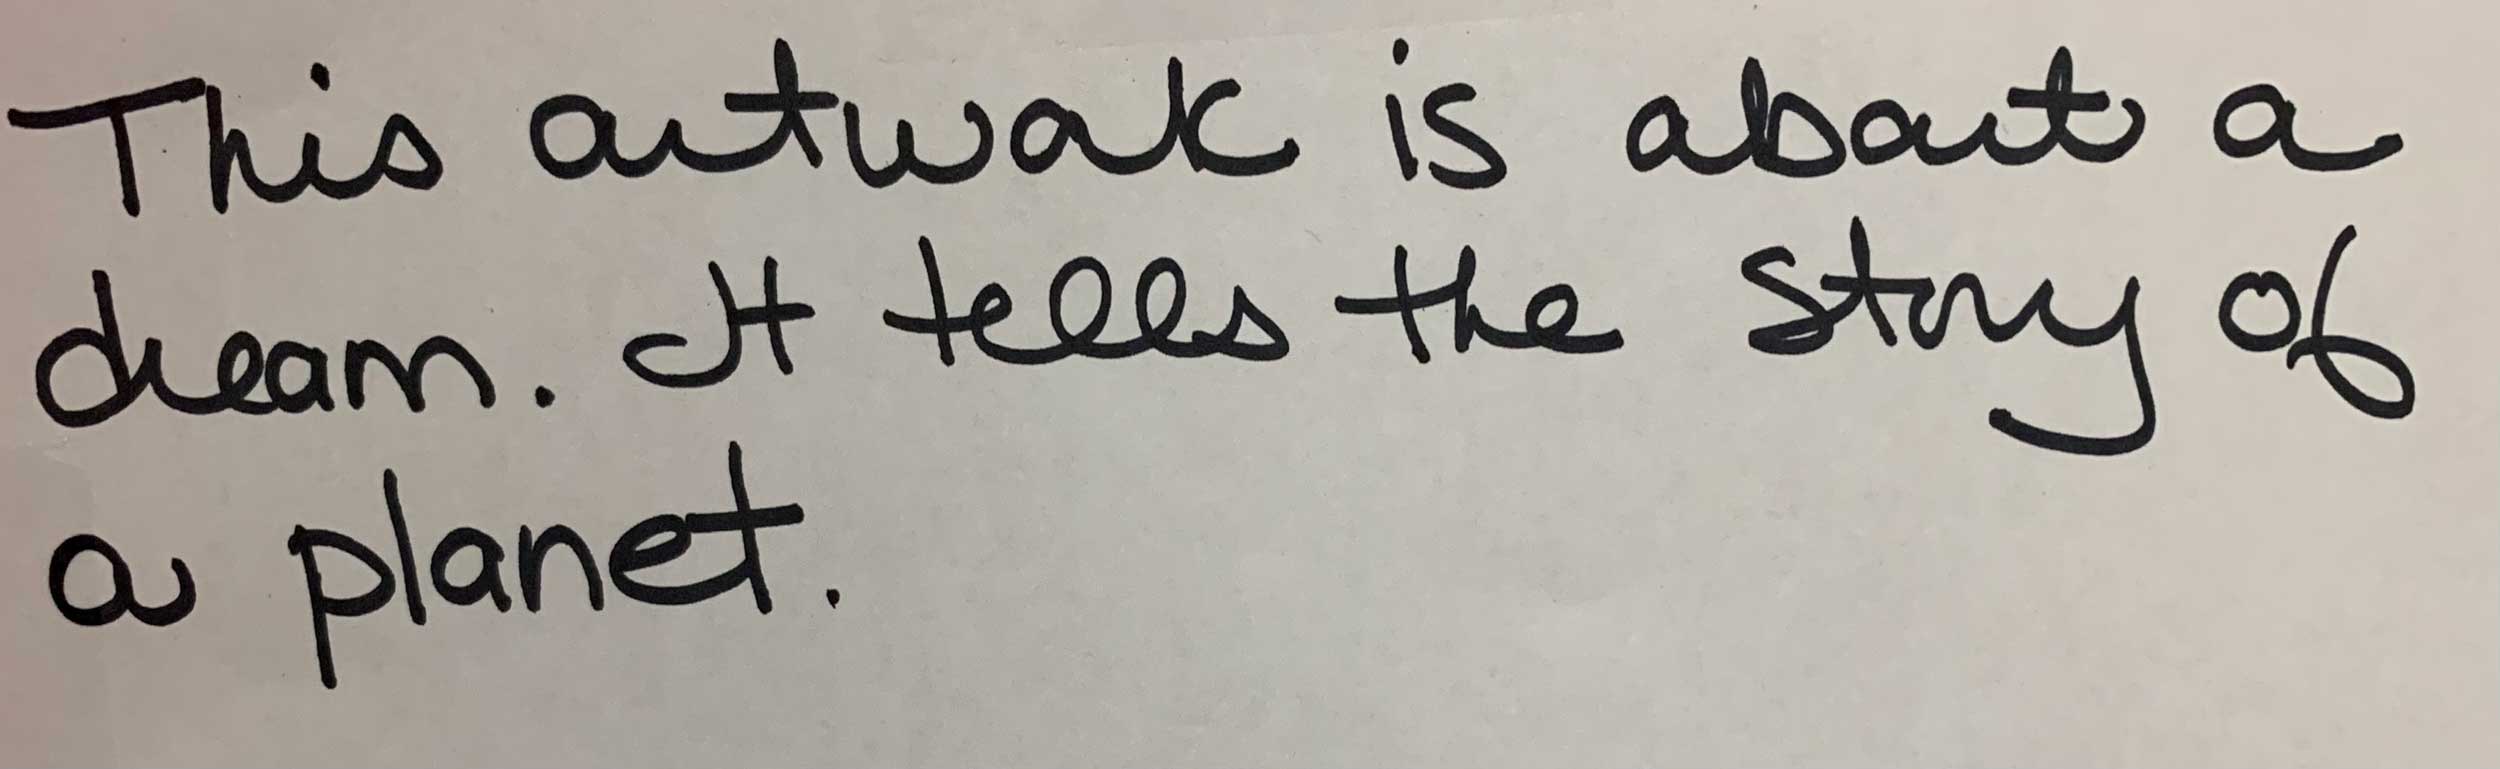 This artwork is about a
dream. It tells the story of
a planet.